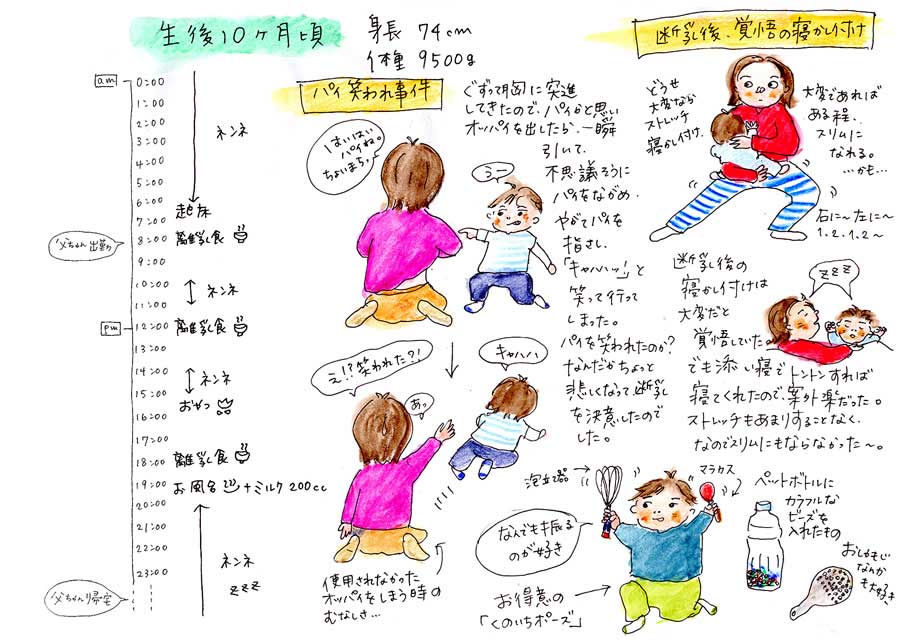 生後10ヶ月頃
身長 74cm
体種 9500g
am
0:00
1:00
2:00
3:00
4:00
5:00
6:00
7:00
8:00
9:00
10:00
11:00
pm
12:00
13:00
14:00
15:00
16:00
17:00
18:00
19:00
20:00
21:00
22:00
23:00
ネンネ
起床
離乳食
父ちゃん出勤
ネンネ
離乳食
ネンネ
おやつ
離乳食
お風呂 +ミルク 200cc
ネンネ
zzz
父ちゃん帰宅
パイ笑われ事件
はいはい
パイね。
ちょいまち。
うー
ぐずって胸に突進
してきたので、パイかと思い
オッパイを出したら、一瞬
引いて、
不思議そうに
パイをながめ、
やがてパイを
指さし、
「キャハハッ!」と
笑って行って
しまった。
パイを笑われたのか?
なんだかちょっと
悲しくなって断乳
を決意したので
した。
え!?笑われた?!
あっ
キャハハ
使用されなかった
オッパイをしまう時の
むなしさ…
断乳後、覚悟の寝かし付け
どうせ
大変なら
ストレッチ
寝かし付け。
大変であれば
ある程、
スリムに
なれる。
…かも…
右に〜左に〜
1、2、1、2〜
断乳後の
寝かし付けは
大変だと
覚悟していた
でも添い寝でトントンすれば
寝てくれたので、案外楽だった。
ストレッチもあまりすることなく、
なのでスリムにもならなかった〜。
zzz
泡立て器
マラカス
なんでも振る
のが好き
お得意の
「くのいちポーズ」
ペットボトルに
カラフルな
ビーズを
入れたもの
おしゃもじ
なんか
も大好き